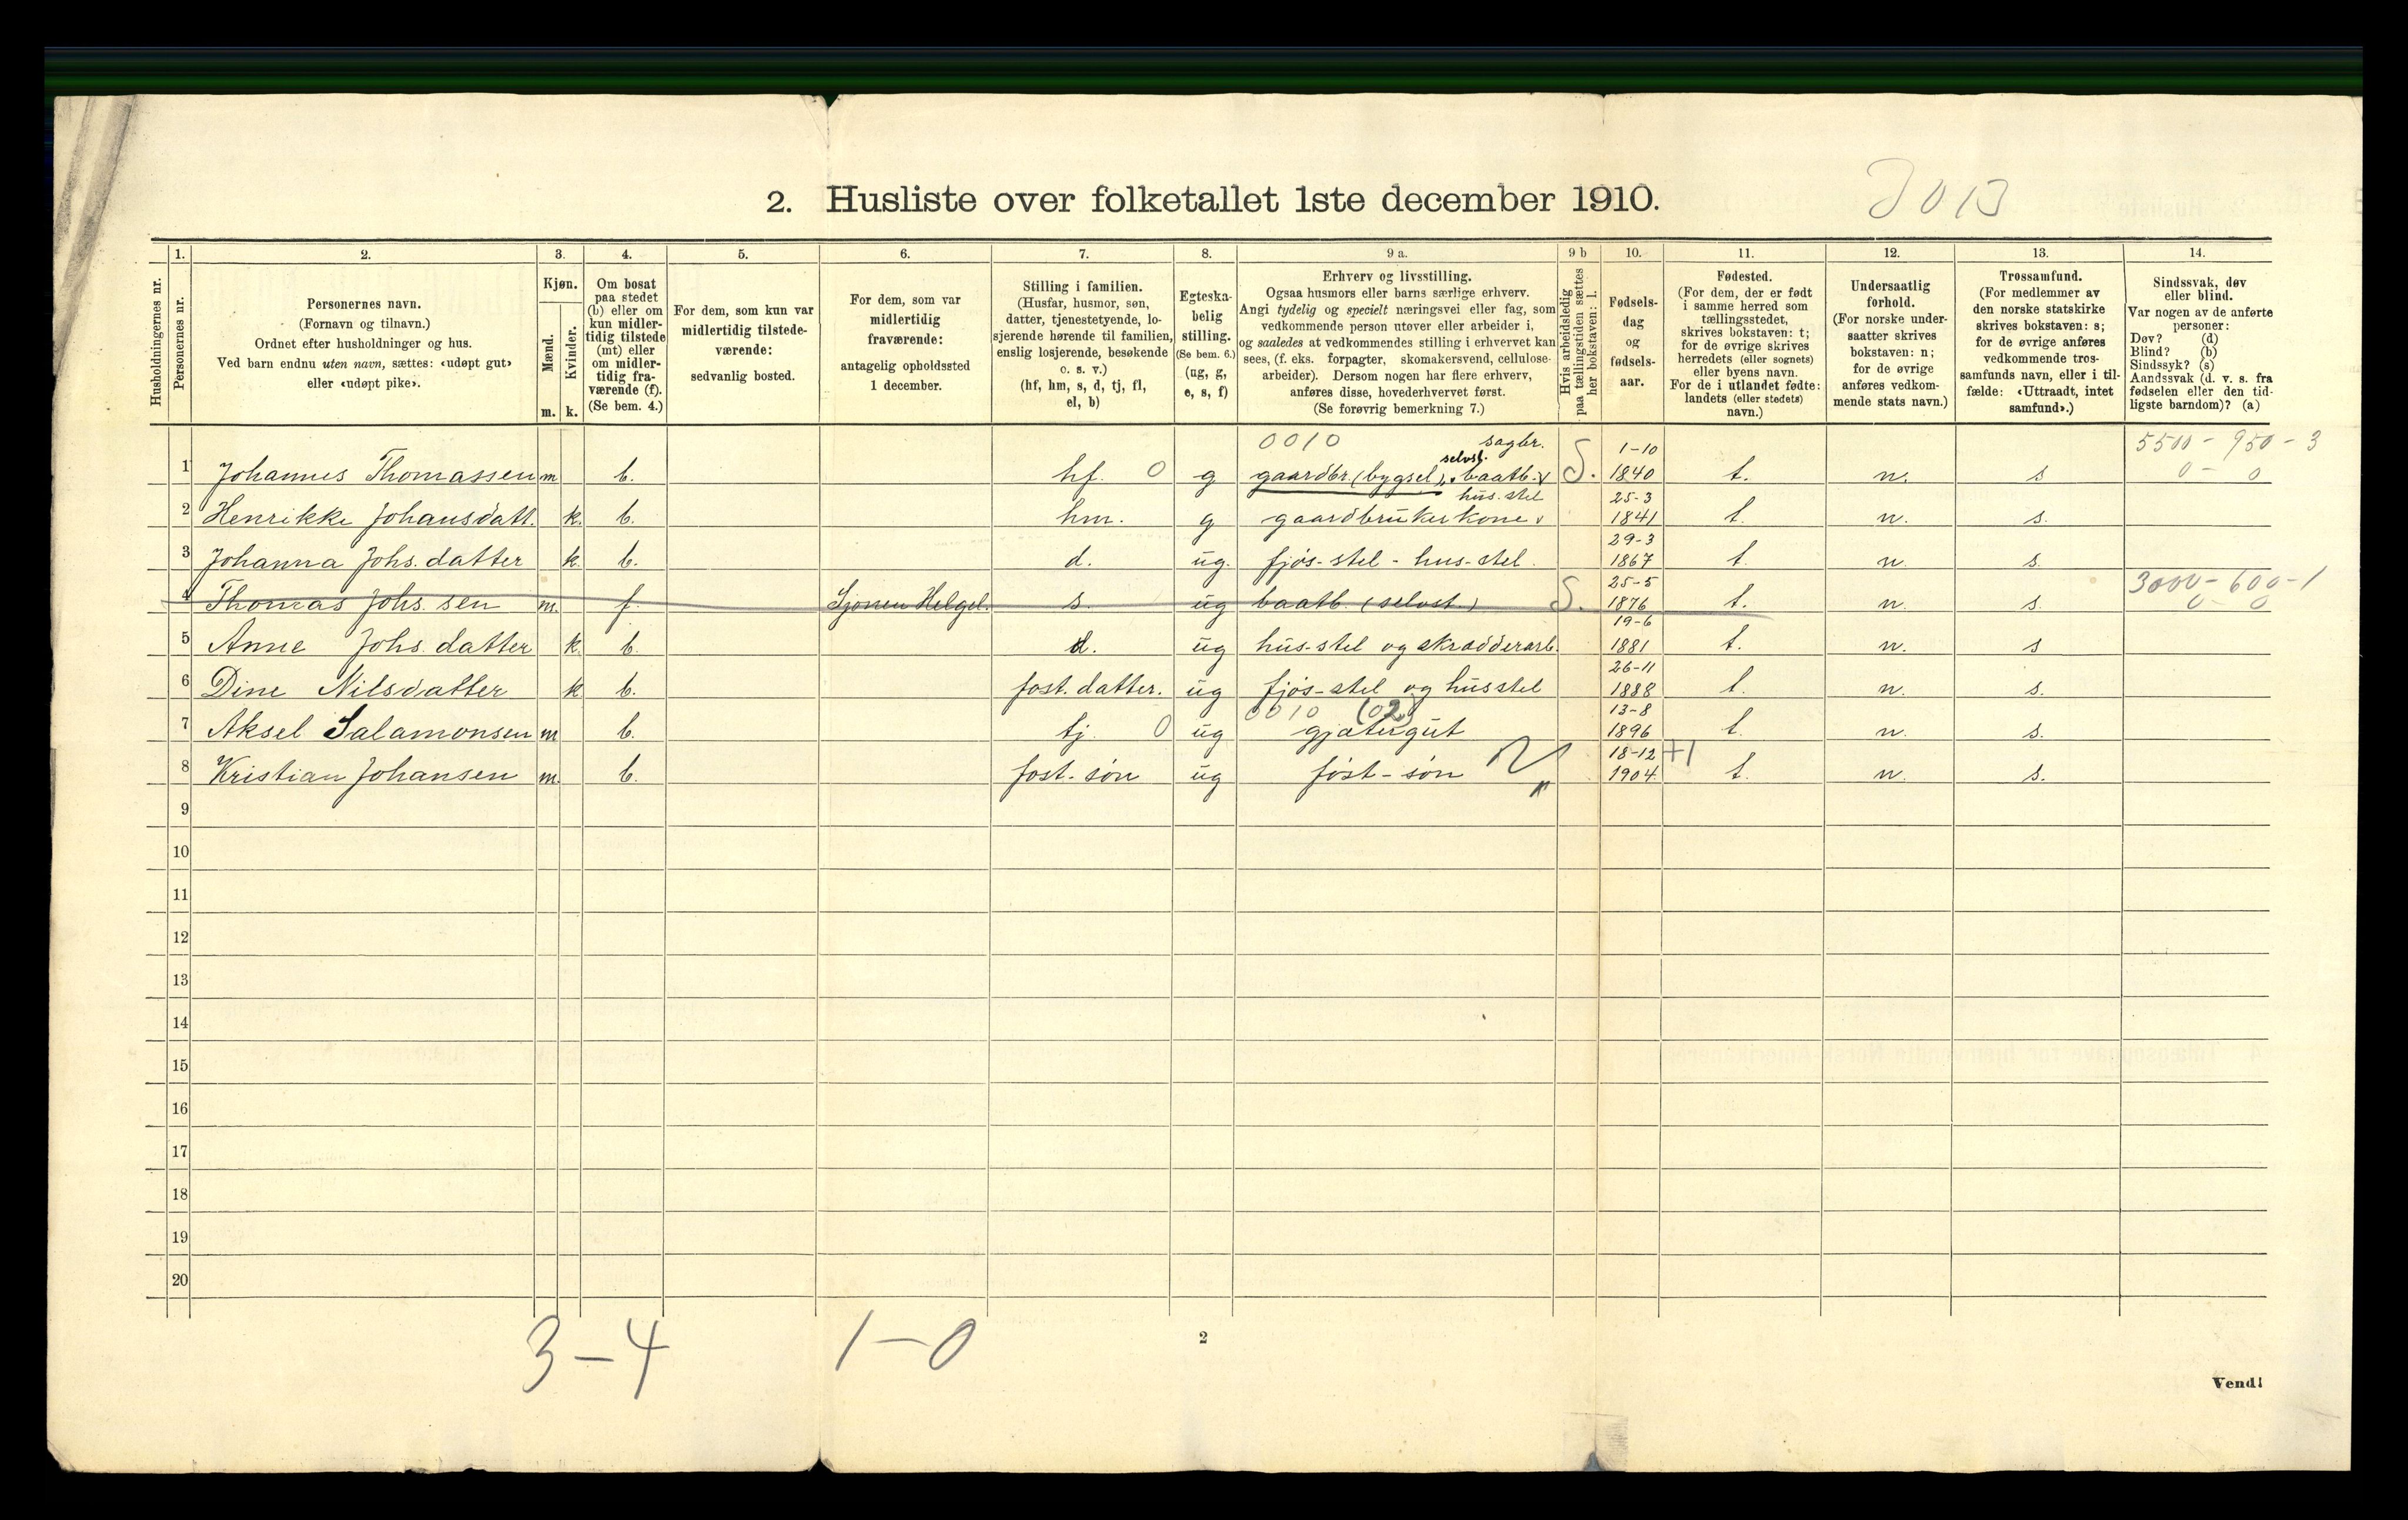 2. Husliste over folketallet 1ste december 1910.
Husholdningernes nr.
1.
Personernes nr.
2.
Personernes navn.
(Fornavn og tilnavn.)
Ordnet efter husholdninger og hus.
Ved barn endnu uten navn, sættes: «udøpt gut»
eller «udøpt pike».
3.
Kjøn.
Mænd.
Kvinder.
m. k.
4.
Om bosat
paa stedet
(b) eller om
kun midler-
tidig tilstede
(mt) eller
om midler-
tidig fra-
værende (f).
(Se bem. 4.)
5.
For dem, som kun var
midlertidig tilstede-
værende:
sedvanlig bosted.
6.
For dem, som var
midlertidig
fraværende:
antagelig opholdssted
1 december.
7.
Stilling i familien.
(Husfar, husmor, søn,
datter, tjenestetyende, lo-
sjerende hørende til familien,
enslig losjerende, besøkende
o. s. v.)
(hf, hm, s, d, tj, fl,
el, b)
8.
Egteska-
belig
stilling.
(Se bem. 6.)
(ug, g,
e, s, f)
9 a.
Erhverv og livsstilling.
Ogsaa husmors eller barns særlige erhverv.
Angi tydelig og specielt næringsvei eller fag, som
vedkommende person utøver eller arbeider i,
og saaledes at vedkommendes stilling i erhvervet kan
sees, (f. eks. forpagter, skomakersvend, cellulose-
arbeider). Dersom nogen har flere erhverv,
anføres disse, hovederhvervet først.
(Se forøvrig bemerkning 7.)
9 b
Hvis arbeidsledig
paa tællingstiden sættes
her bokstaven: l.
10.
Fødsels-
dag
og
fødsels-
aar.
11.
Fødested.
(For dem, der er født
i samme herred som
tællingsstedet,
skrives bokstaven: t;
for de øvrige skrives
herredets (eller sognets)
eller byens navn.
For de i utlandet fødte:
landets (eller stedets)
navn.)
12.
Undersaatlig
forhold.
(For norske under-
saatter skrives
bokstaven: n;
for de øvrige
anføres vedkom-
mende stats navn.)
13.
Trossamfund.
(For medlemmer av
den norske statskirke
skrives bokstaven: s;
for de øvrige anføres
vedkommende tros-
samfunds navn, eller i til-
fælde: «Uttraadt, intet
samfund».)
14.
Sindssvak, døv
eller blind.
Var nogen av de anførte
personer:
Døv? (d)
Blind? (b)
Sindssyk? (s)
Aandssvak (d. v. s. fra
fødselen eller den tid-
ligste barndom)? (a)
0010 sagbr. 1-10 5500 - 950 - 3
selvst.
1 Johannes Thomassen m b. hf. 0 g gaardbr. (bygsel), baatb. S. 1840 t. n. s 0 - 0
hus. stel 25-3
2 Henrikke Johansdatt. k. b. hm. g gaardbrukerkone 1841 t. n. s.
29-3
3 Johanna Johs. datter k. b. d. ug. fjøs-stel - hus-stel. 1867 t. n. s.
25-5 3000 - 600 - 1
4 Thomas Johs. sen m. f. Sjonen Helgel. s. ug baatb. (selvst.) S. 1876 t. n. s. 0 - 0
19-6
5 Anne Johs. datter k b. d. ug hus-stel og skrædderarb. 1881 t. n. s
26-11
6 Dine Nilsdatter k b. fost. datter. ug fjøs-stel og husstel 1888 t. n. s.
0010 (02) 13-8
7 Aksel Salamonsen m b. tj. 0 ug gjætergut 1896 t. n. s.
18-12 +1
8 Kristian Johansen m. b. fost-søn ug fost-søn 1904. t. n. s.
9
10
11
12
13
14
15
16
17
18
19
20
3 - 4 1 - 0
2
Vend!